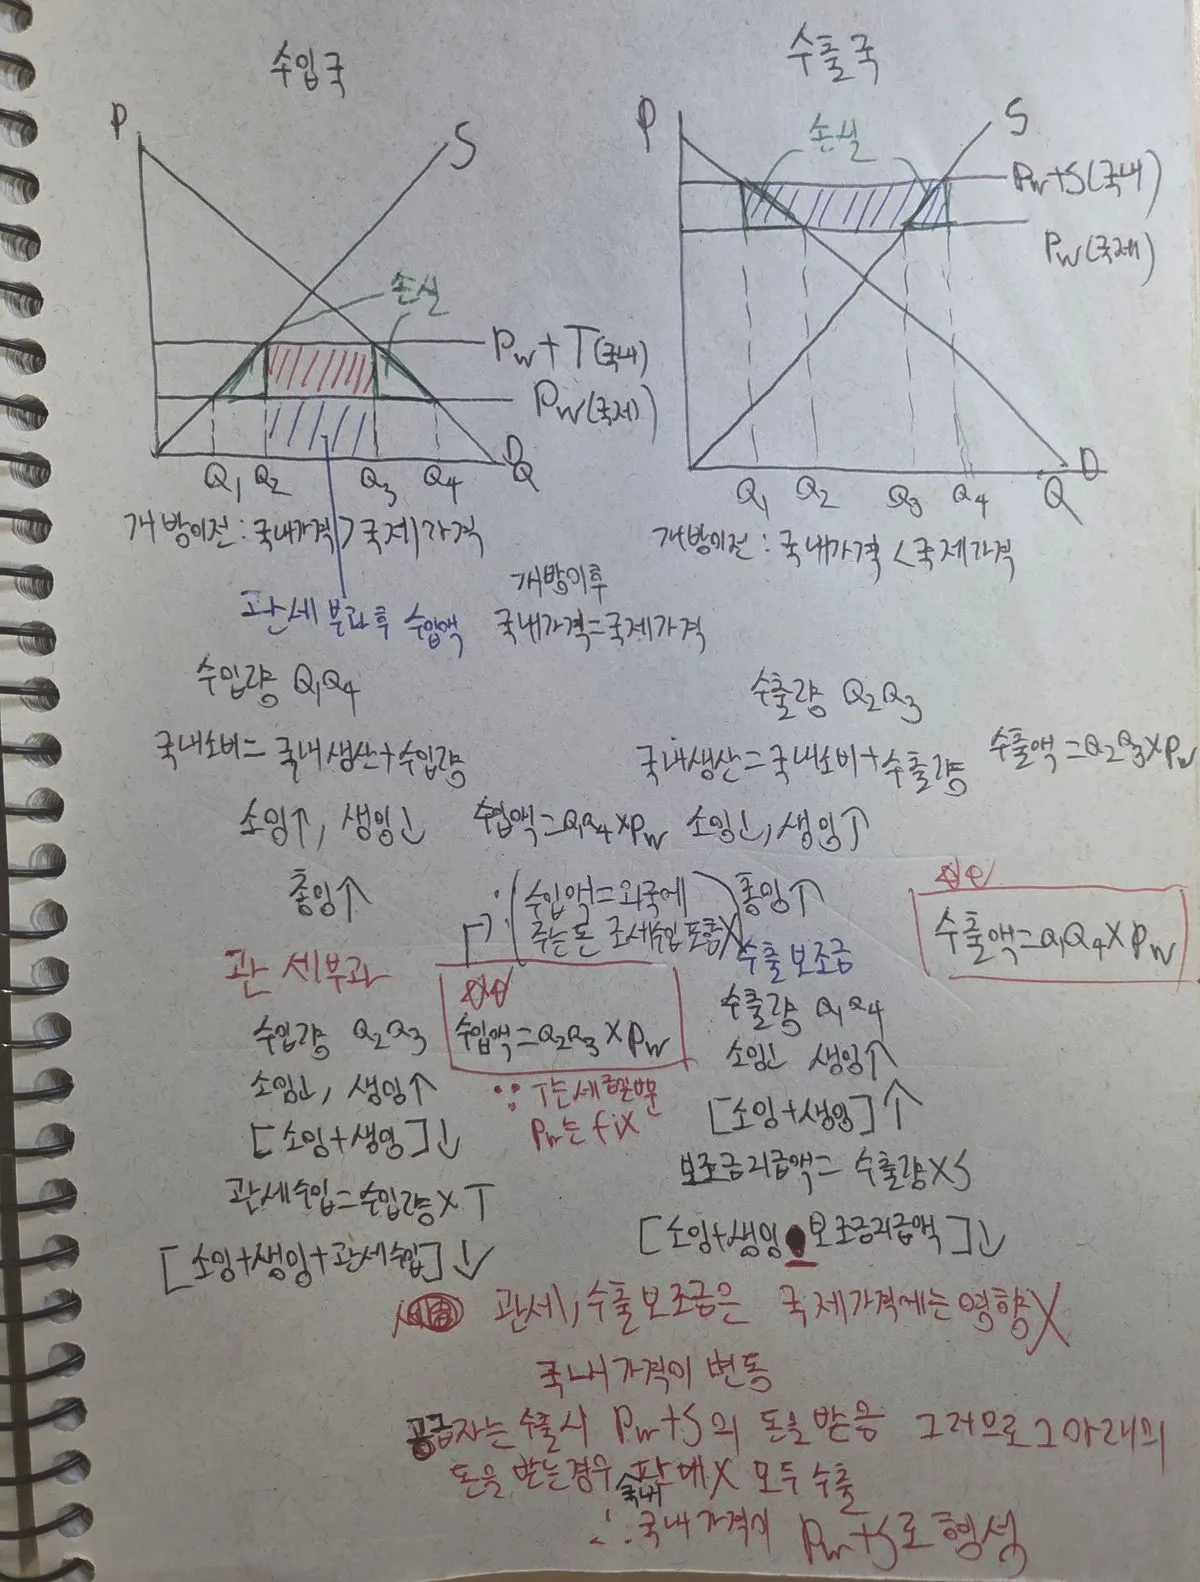 수입국
P
S
손실
Pw + T(국내)
Pw(국제)
D
Q1 Q2 Q3 Q4 Q
개방이전 : 국내가격 > 국제가격
관세 부과 후 수입액
수출국
P
S
손실
Pw+S(국내)
Pw(국제)
D
Q1 Q2 Q3 Q4 Q
개방이전 : 국내가격 < 국제가격
개방이후
국내가격=국제가격
수입량 Q1Q4
국내소비= 국내생산+수입량
소잉↑, 생잉↓ 수입액=Q1Q4×Pw
총잉↑
∵(수입액=외국에
주는돈 조세수입 포함X)
관세부과
수입량 Q2Q3
소잉↓, 생잉↑
[소잉+생잉]↓
관세수입=수입량×T
[소잉+생잉+관세수입]↓
수입액=Q2Q3×Pw
∵ T는 세금일뿐
Pw는 fix
수출량 Q2Q3
국내생산=국내소비+수출량 수출액=Q2Q3×Pw
소잉↓, 생잉↑
총잉↑
수출보조금
수출량 Q1Q4
소잉↓ 생잉↑
[소잉+생잉]↑
보조금지급액= 수출량×S
[소잉+생잉 보조금지급액]↓
수출액=Q1Q4×Pw
관세, 수출보조금은 국제가격에는 영향X
국내가격이 변동
공급자는 수출시 Pw+S의 돈을 받음 그러므로 그 아래의
돈을 받는경우 국내 판매X 모두 수출
∴ 국내가격이 Pw+S로 형성